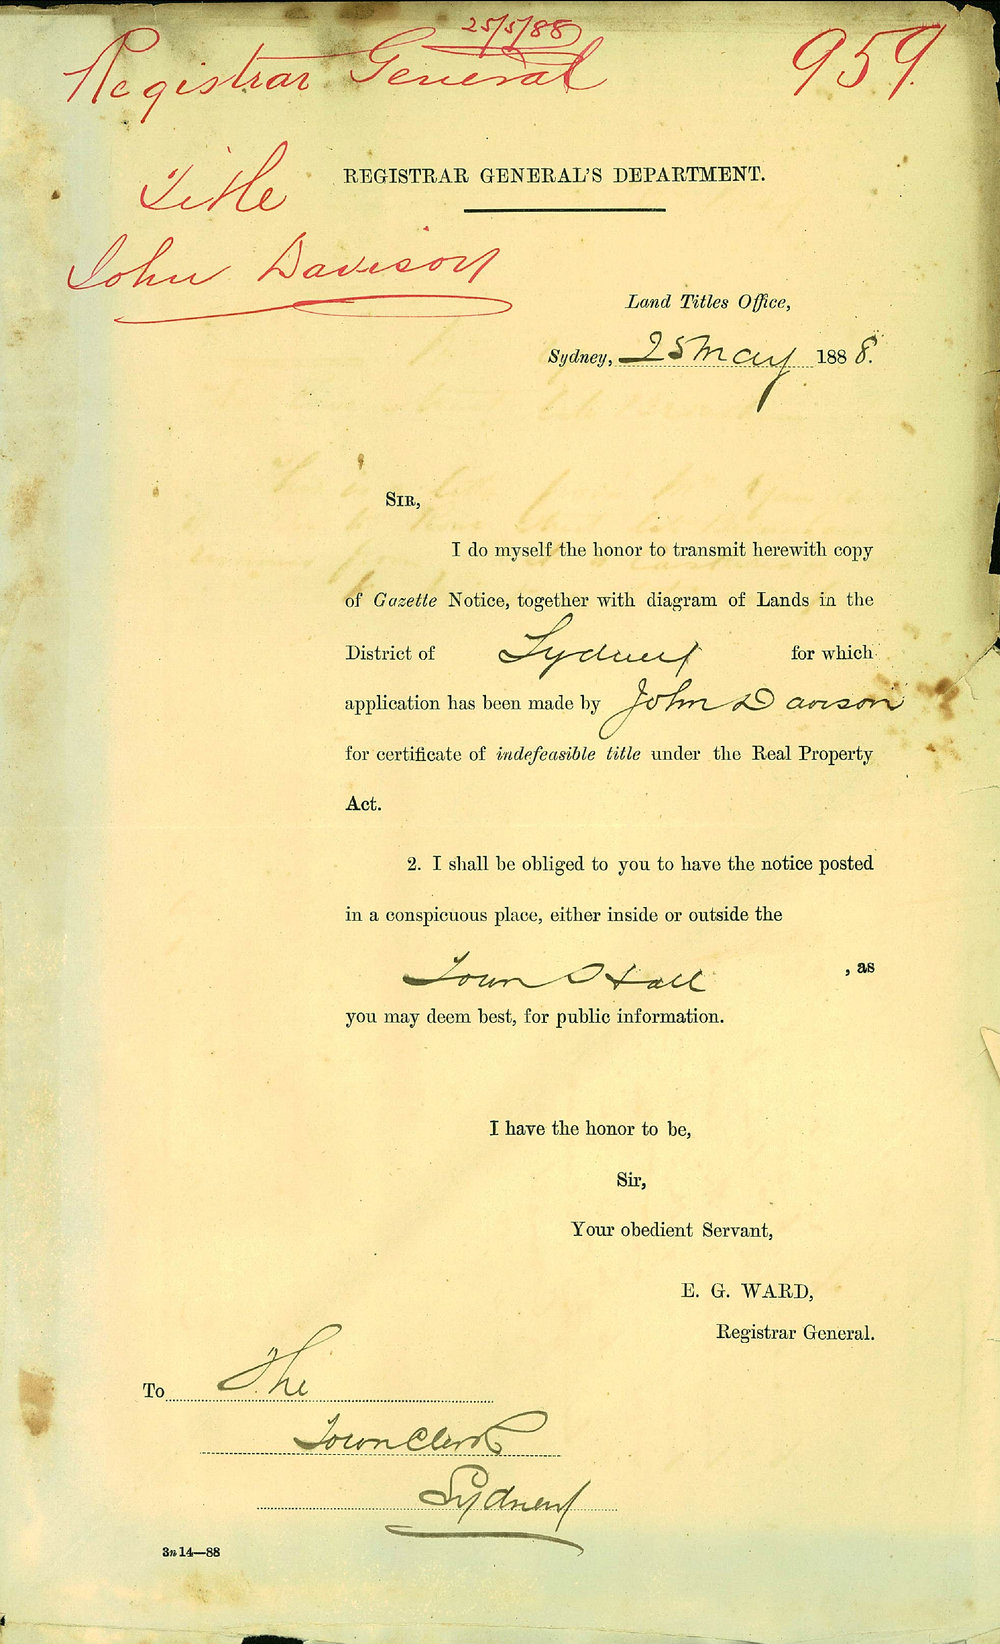 25/5/88
Registrar General
959.
Title
John Davison
REGISTRAR GENERAL'S DEPARTMENT.
Land Titles Office,
Sydney, 25 May 1888.
SIR,
I do myself the honor to transmit herewith copy
of Gazette Notice, together with diagram of Lands in the
District of Sydney for which
application has been made by John Davison
for certificate of indefeasible title under the Real Property
Act.
2. I shall be obliged to you to have the notice posted
in a conspicuous place, either inside or outside the
Town Hall , as
you may deem best, for public information.
I have the honor to be,
Sir,
Your obedient Servant,
E. G. WARD,
Registrar General.
To The
Town Clerk
Sydney
3n14—88